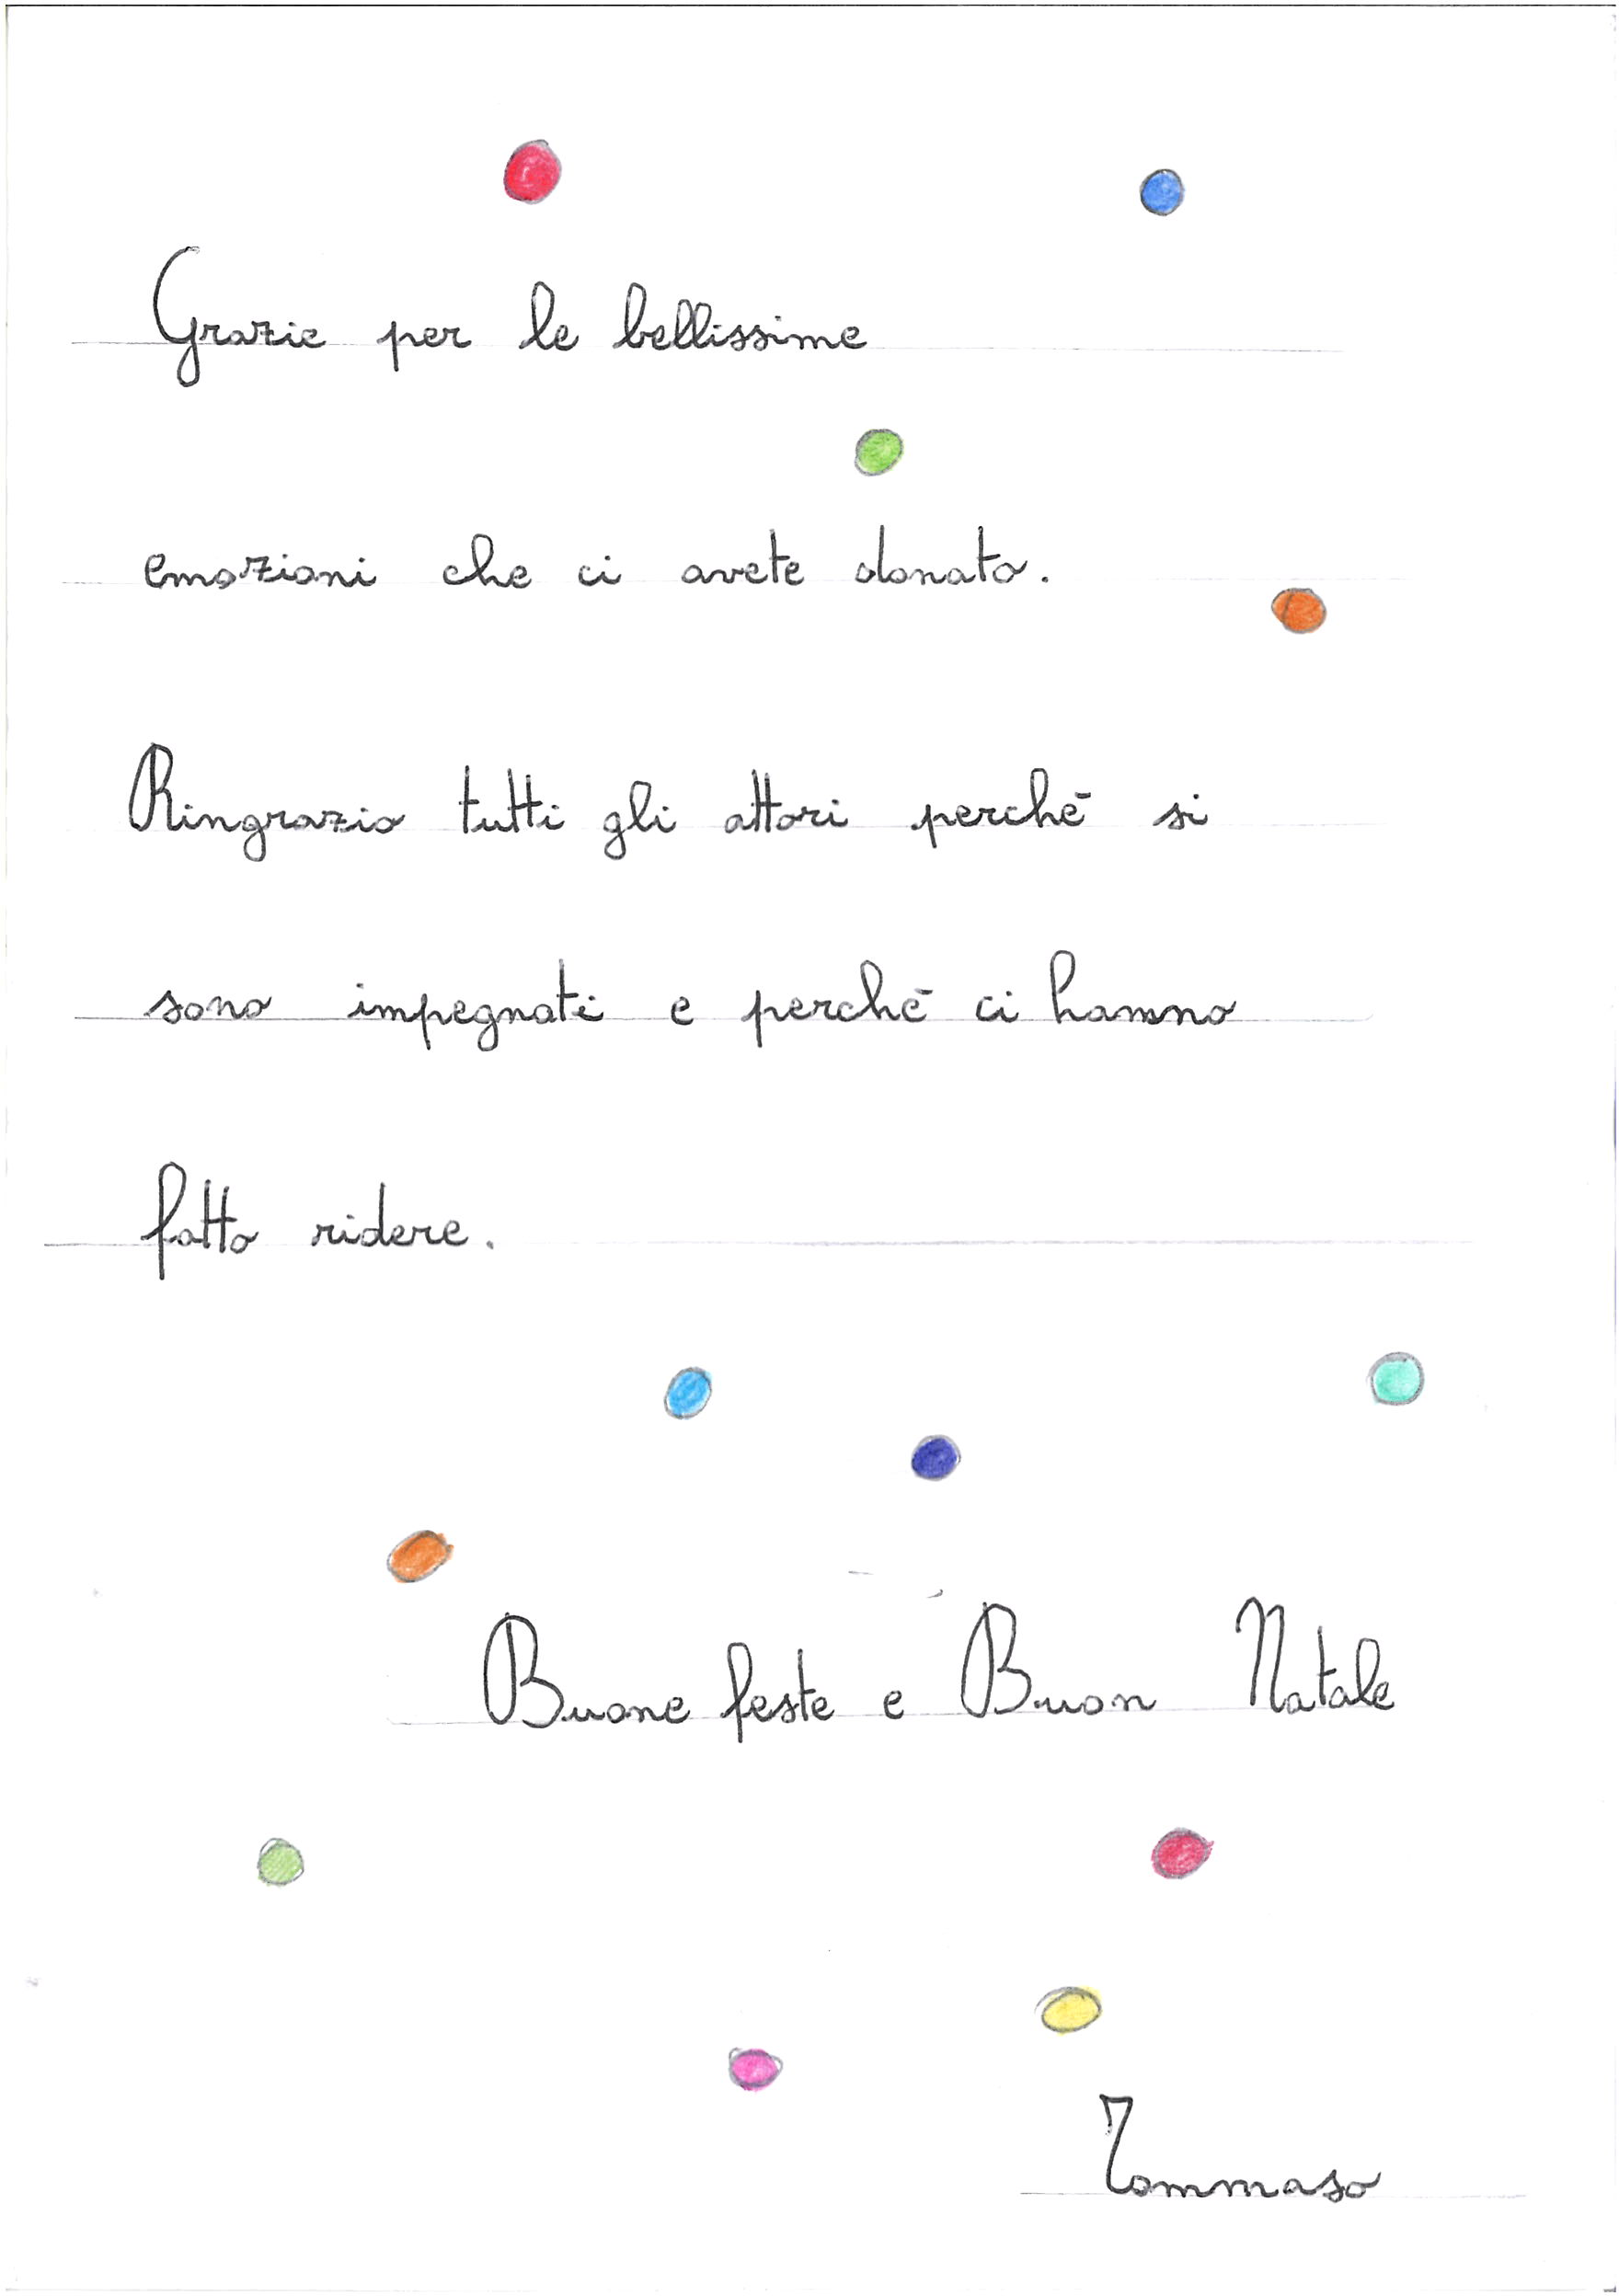 Grazie per le bellissime
emozioni che ci avete donato.
Ringrazio tutti gli attori perchē si
sono impegnati e perchē ci hanno
fatto ridere.
Buone feste e Buon Natale
Tommaso